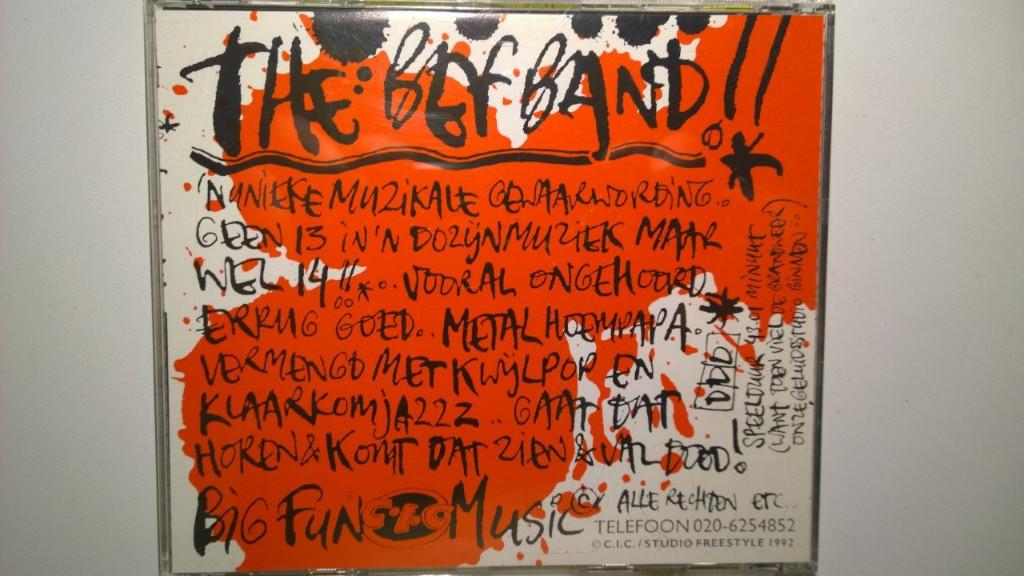 THE BEF BAND!!
'N UNIEKE MUZIKALE GEWAARWORDING..
GEEN 13 IN 'N DOZIJN MUZIEK MAAR
WEL 14!!..*.. VOORAL ONGEHOORD
ERRUG GOED.. METAL HOEMPAPA..
VERMENGD MET KWIJLPOP EN
KLAARKOMJAZZZ.. GAAT DAT
HOREN & KOMT DAT ZIEN & VAL DOOD!
DDD
* SPEELDUUR 43.01 MINUUT
(WANT TOEN VIEL DE BRANDWEER)
ONZE GELUIDSSTUDIO BINNEN..
BIG FUN MUSIC
℗ © ALLE RECHTEN ETC...
TELEFOON 020-6254852
© C.I.C. / STUDIO FREESTYLE 1992